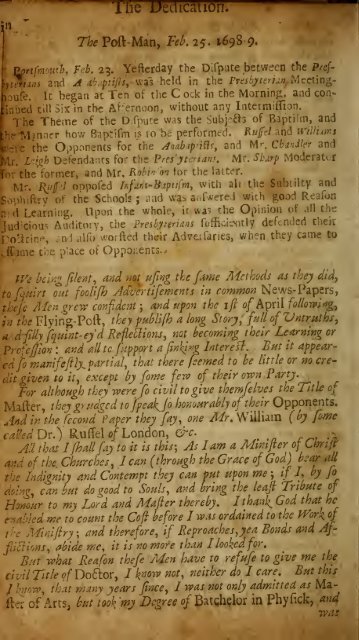 The Dedication.
in
The Post-Man, Feb. 25. 1698-9.
Portsmouth, Feb. 23. Yesterday the Dispute between the Pres-
byterians and Anabaptists, was held in the Presbyterian Meeting-
house. It began at Ten of the Clock in the Morning, and con-
tinued till Six in the Afternoon, without any Intermission.
The Theme of the Dispute was the Subjects of Baptism, and
the Manner how Baptism is to be performed. Russel and Williams
were the Opponents for the Anabaptists, and Mr. Chandler and
Mr. Leigh Defendants for the Presbyterians. Mr. Sharp Moderator
for the former, and Mr. Robinson for the latter.
Mr. Russel opposed Infant-Baptism, with all the Subtilty and
Sophistry of the Schools; and was answered with good Reason
and Learning. Upon the whole, it was the Opinion of all the
Judicious Auditory, the Presbyterians sufficiently defended their
Doctrine, and also worsted their Adversaries, when they came to
assume the place of Opponents.
We being silent, and not using the same Methods as they did,
to squirt out foolish Advertisements in common News-Papers,
these Men grew confident; and upon the 1st of April following,
in the Flying-Post, they publish a long Story, full of Untruths,
and filly squint-ey'd Reflections, not becoming their Learning or
Profession: and all to support a sinking Interest. But it appear-
ed so manifestly partial, that there seemed to be little or no cre-
dit given to it, except by some few of their own Party.
For although they were so civil to give themselves the Title of
Master, they grudged to speak so honourably of their Opponents.
And in the second Paper they say, one Mr. William (by some
called Dr.) Russel of London, &c.
All that I shall say to it is this; As I am a Minister of Christ
and of the Churches, I can (through the Grace of God) bear all
the Indignity and Contempt they can put upon me; if I, by so
doing, can but do good to Souls, and bring the least Tribute of
Honour to my Lord and Master thereby. I thank God that he
enabled me to count the Cost before I was ordained to the Work of
the Ministry; and therefore, if Reproaches, yea Bonds and Af-
flictions, abide me, it is no more than I looked for.
But what Reason these Men have to refuse to give me the
civil Title of Doctor, I know not, neither do I care. But this
I know, that many years since, I was not only admitted as Ma-
ster of Arts, but took my Degree of Batchelor in Physick, and
was